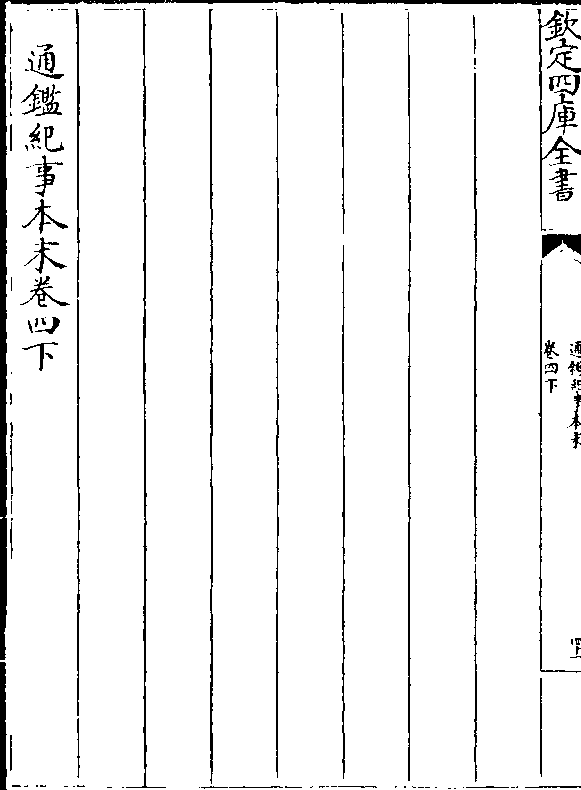 欽定四庫全書
通鑑紀事本末
卷四下
通鑑紀事本末卷四下